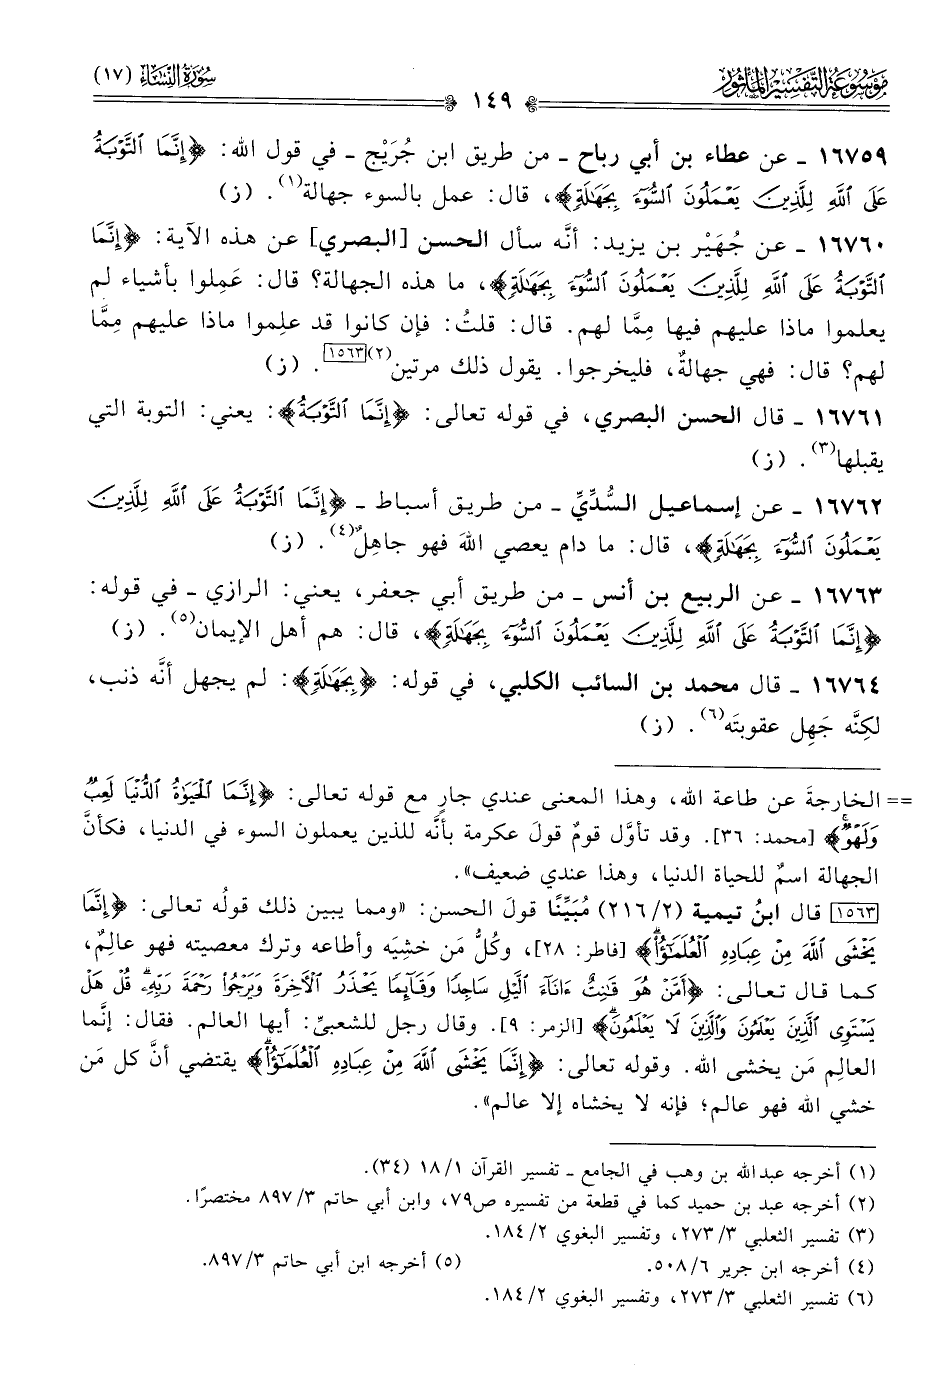 مَوْسُوعَة التَّفْسِير المَأْثُور
١٤٩
سُورَةُ النِّسَاء (١٧)
١٦٧٥٩ ـ عن عطاء بن أبي رباح ـ من طريق ابن جُرَيْج ـ في قول الله: ﴿إِنَّمَا ٱلتَّوْبَةُ
عَلَى ٱللَّهِ لِلَّذِينَ يَعْمَلُونَ ٱلسُّوٓءَ بِجَهَٰلَةٍ﴾، قال: عمل بالسوء جهالة(١). (ز)
١٦٧٦٠ ـ عن جُهَيْر بن يزيد: أنَّه سأل الحسن [البصري] عن هذه الآية: ﴿إِنَّمَا
ٱلتَّوْبَةُ عَلَى ٱللَّهِ لِلَّذِينَ يَعْمَلُونَ ٱلسُّوٓءَ بِجَهَٰلَةٍ﴾، ما هذه الجهالة؟ قال: عَمِلوا بأشياء لم
يعلموا ماذا عليهم فيها مِمَّا لهم. قال: قلتُ: فإن كانوا قد علِموا ماذا عليهم مِمَّا
لهم؟ قال: فهي جهالةٌ، فليخرجوا. يقول ذلك مرتين(٢)[١٥٦٣]. (ز)
١٦٧٦١ ـ قال الحسن البصري، في قوله تعالى: ﴿إِنَّمَا ٱلتَّوْبَةُ﴾: يعني: التوبة التي
يقبلها(٣). (ز)
١٦٧٦٢ ـ عن إسماعيل السُّدِّيِّ ـ من طريق أسباط ـ ﴿إِنَّمَا ٱلتَّوْبَةُ عَلَى ٱللَّهِ لِلَّذِينَ
يَعْمَلُونَ ٱلسُّوٓءَ بِجَهَٰلَةٍ﴾، قال: ما دام يعصي اللهَ فهو جاهلٌ(٤). (ز)
١٦٧٦٣ ـ عن الربيع بن أنس ـ من طريق أبي جعفر، يعني: الرازي ـ في قوله:
﴿إِنَّمَا ٱلتَّوْبَةُ عَلَى ٱللَّهِ لِلَّذِينَ يَعْمَلُونَ ٱلسُّوٓءَ بِجَهَٰلَةٍ﴾، قال: هم أهل الإيمان(٥). (ز)
١٦٧٦٤ ـ قال محمد بن السائب الكلبي، في قوله: ﴿بِجَهَٰلَةٍ﴾: لم يجهل أنَّه ذنب،
لكِنَّه جَهِل عقوبتَه(٦). (ز)
== الخارجةَ عن طاعة الله، وهذا المعنى عندي جارٍ مع قوله تعالى: ﴿إِنَّمَا ٱلْحَيَوٰةُ ٱلدُّنْيَا لَعِبٌ
وَلَهْوٌ﴾ [محمد: ٣٦]. وقد تأوَّل قومٌ قولَ عكرمة بأنَّه للذين يعملون السوء في الدنيا، فكأنَّ
الجهالة اسمٌ للحياة الدنيا، وهذا عندي ضعيف».
[١٥٦٣] قال ابنُ تيمية (٢١٦/٢) مُبَيِّنًا قولَ الحسن: «ومما يبين ذلك قولُه تعالى: ﴿إِنَّمَا
يَخْشَى ٱللَّهَ مِنْ عِبَادِهِ ٱلْعُلَمَٰٓؤُا۟﴾ [فاطر: ٢٨]، وكُلُّ مَن خشِيَه وأطاعه وترك معصيته فهو عالِمٌ،
كما قال تعالى: ﴿أَمَّنْ هُوَ قَٰنِتٌ ءَانَآءَ ٱلَّيْلِ سَاجِدًا وَقَآئِمًا يَحْذَرُ ٱلْءَاخِرَةَ وَيَرْجُوا۟ رَحْمَةَ رَبِّهِۦ قُلْ هَلْ
يَسْتَوِى ٱلَّذِينَ يَعْلَمُونَ وَٱلَّذِينَ لَا يَعْلَمُونَ﴾ [الزمر: ٩]. وقال رجل للشعبيِّ: أيها العالم. فقال: إنَّما
العالِم مَن يخشى الله. وقوله تعالى: ﴿إِنَّمَا يَخْشَى ٱللَّهَ مِنْ عِبَادِهِ ٱلْعُلَمَٰٓؤُا۟﴾ يقتضي أنَّ كل مَن
خشي الله فهو عالم؛ فإنه لا يخشاه إلا عالم».
(١) أخرجه عبدالله بن وهب في الجامع ـ تفسير القرآن ١٨/١ (٣٤).
(٢) أخرجه عبد بن حميد كما في قطعة من تفسيره ص٧٩، وابن أبي حاتم ٨٩٧/٣ مختصرًا.
(٣) تفسير الثعلبي ٢٧٣/٣، وتفسير البغوي ١٨٤/٢.
(٤) أخرجه ابن جرير ٥٠٨/٦.
(٥) أخرجه ابن أبي حاتم ٨٩٧/٣.
(٦) تفسير الثعلبي ٢٧٣/٣، وتفسير البغوي ١٨٤/٢.